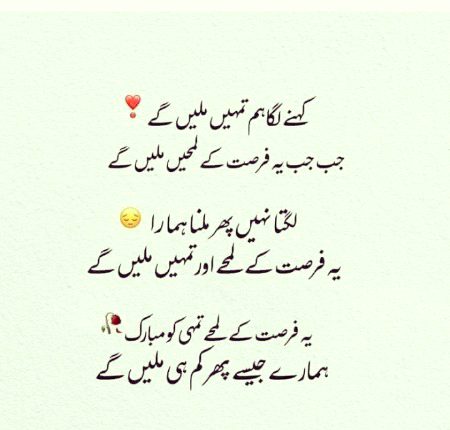 کہنے لگا ہم تمہیں ملیں گے ❣️
جب جب یہ فرصت کے لمحیں ملیں گے
لگتا نہیں پھر ملنا ہمارا 😔
یہ فرصت کے لمحے اور تمہیں ملیں گے
یہ فرصت کے لمحے تمہی کو مبارک 🥀
ہمارے جیسے پھر کم ہی ملیں گے